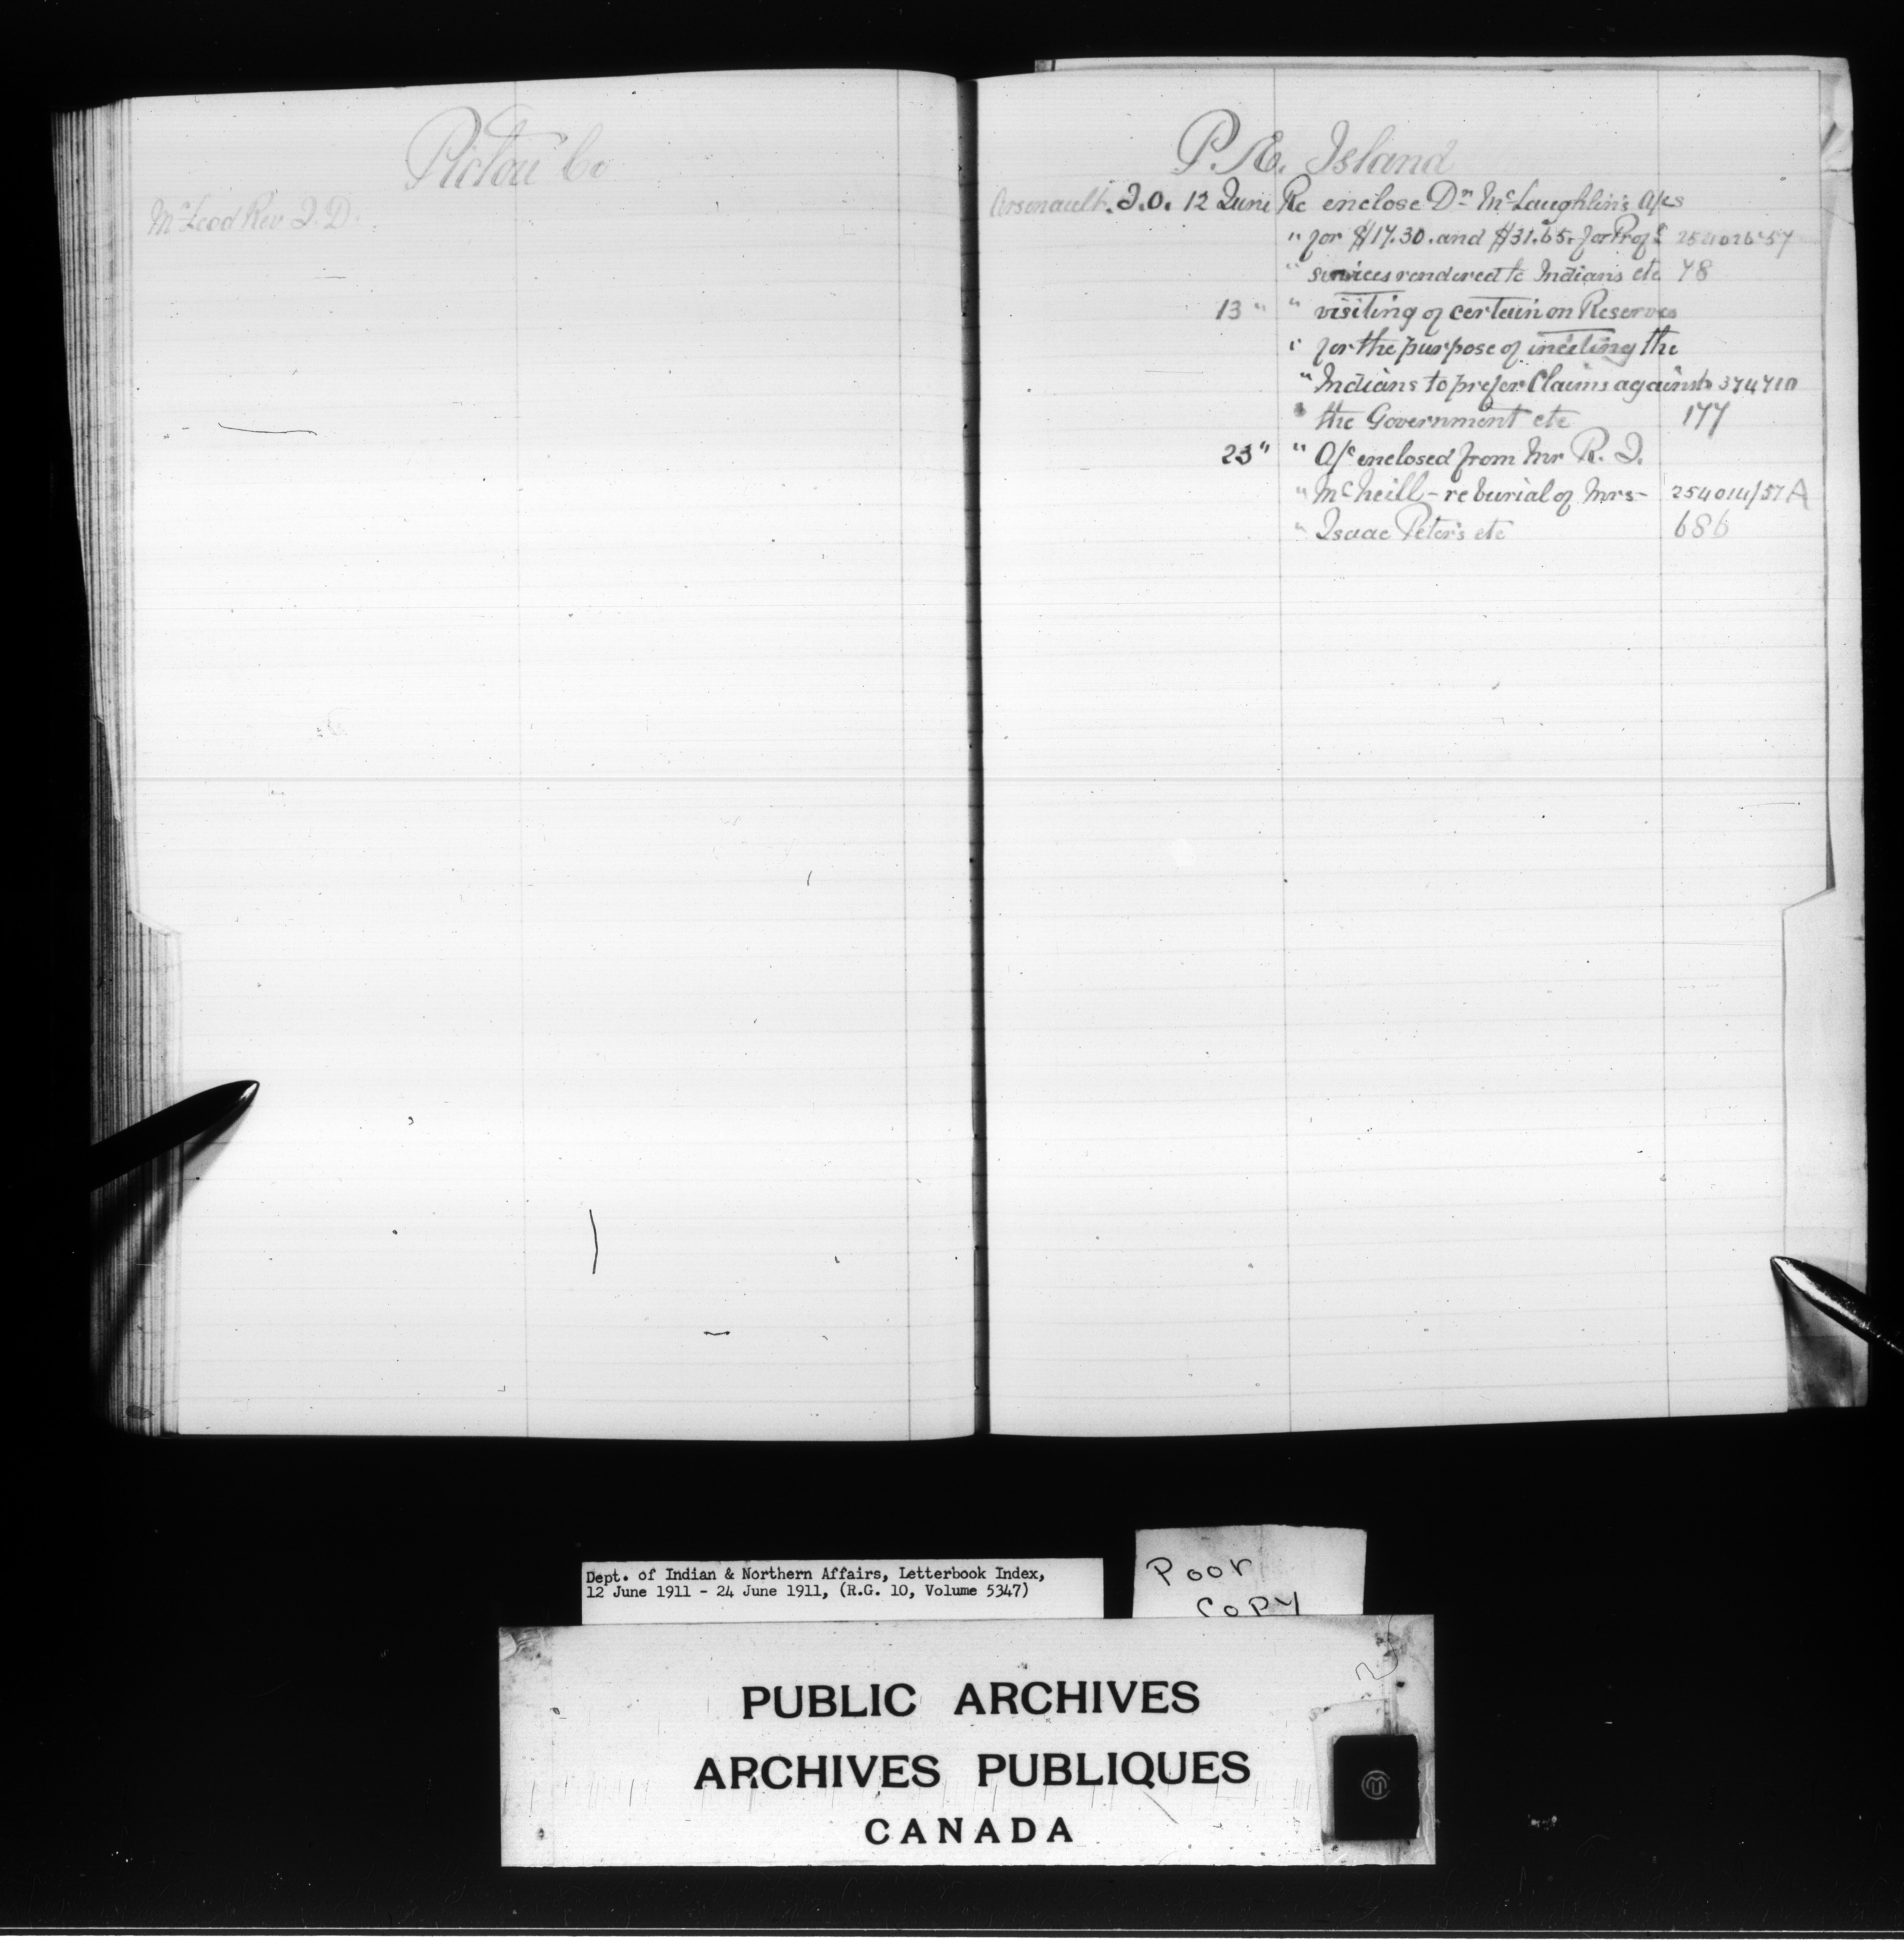 Pictou Co
McLeod Rev J. D.
P. E. Island
Arsenault. J. O. 12 June Re enclose Dr McLaughlin's A/cs
" for $17.30. and $31.65. for Profl 254026-57
" services rendered to Indians etc 78
13 " " visiting of certain on Reserves
" for the purpose of meeting the
" Indians to prefer Claims against 374710
" the Government etc 177
23 " " A/c enclosed from Mr R. J.
" McNeill - re burial of Mrs - 254014/57A
" Isaac Peters etc 686
Dept. of Indian & Northern Affairs, Letterbook Index,
12 June 1911 - 24 June 1911, (R.G. 10, Volume 5347)
POOR
COPY
PUBLIC ARCHIVES
ARCHIVES PUBLIQUES
CANADA